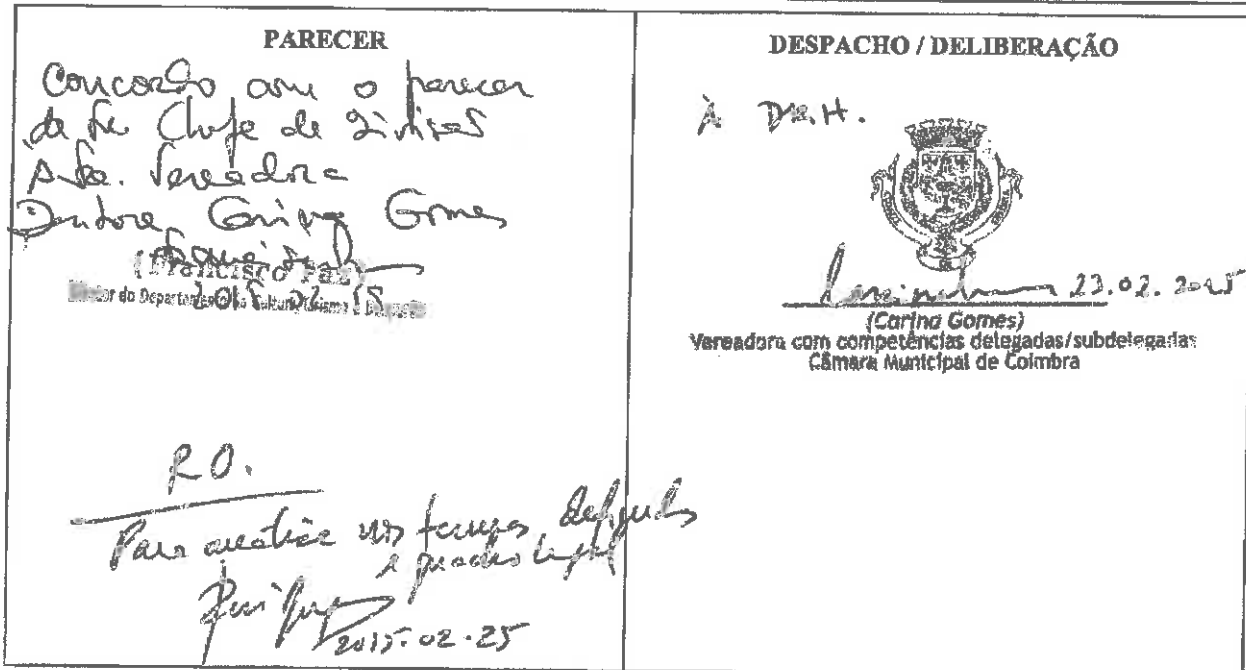 PARECER
Concordo com o parecer
da Sra. Chefe de Divisão
À Sra. Vereadora
Doutora Carina Gomes
(Francisco Paz)
Diretor do Departamento de Cultura, Turismo e Desporto
R.O.
Para análise nos termos definidos
e quadro legal
2015.02.25
DESPACHO / DELIBERAÇÃO
À D.R.H.
23.02.2015
(Carina Gomes)
Vereadora com competências delegadas/subdelegadas
Câmara Municipal de Coimbra